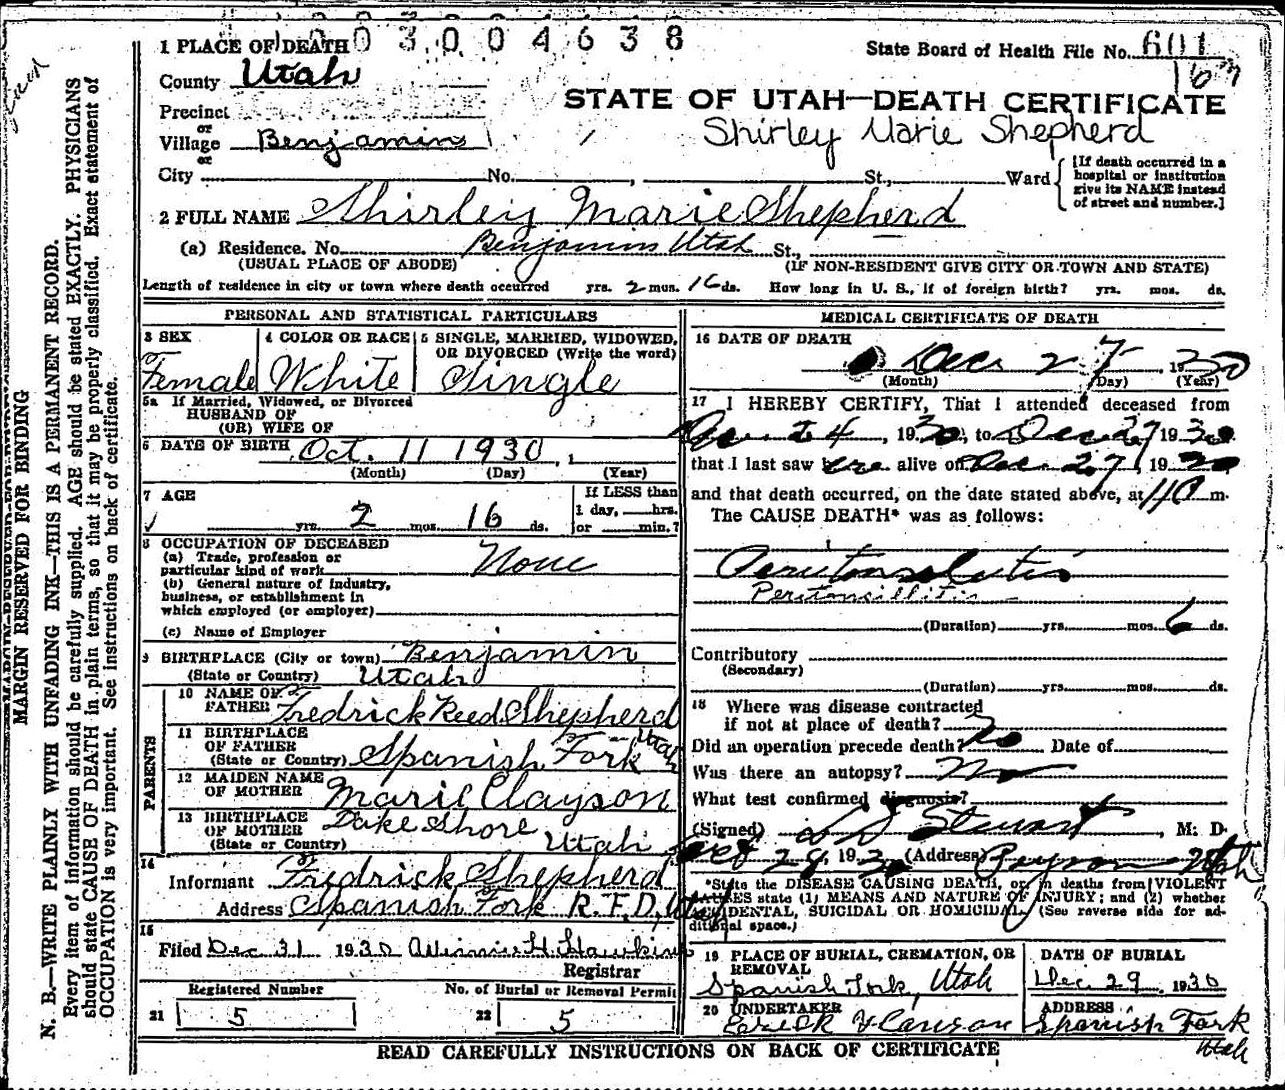 1003004638
1 PLACE OF DEATH
State Board of Health File No. 601
County Utah
163
Precinct
STATE OF UTAH—DEATH CERTIFICATE
or
Village Benjamin
Shirley Marie Shepherd
or
City No. , St., Ward
[If death occurred in a
hospital or institution
give its NAME instead
of street and number.]
2 FULL NAME Shirley Marie Shepherd
(a) Residence. No. Benjamin Utah St.,
(USUAL PLACE OF ABODE) (IF NON-RESIDENT GIVE CITY OR TOWN AND STATE)
Length of residence in city or town where death occurred yrs. 2 mos. 16 ds. How long in U. S., if of foreign birth? yrs. mos. ds.
PERSONAL AND STATISTICAL PARTICULARS
3 SEX
Female
4 COLOR OR RACE
White
5 SINGLE, MARRIED, WIDOWED,
OR DIVORCED (Write the word)
Single
5a If Married, Widowed, or Divorced
HUSBAND OF
(OR) WIFE OF
6 DATE OF BIRTH Oct. 11 1930, 1
(Month) (Day) (Year)
7 AGE
yrs. 2 mos. 16 ds.
If LESS than
1 day, hrs.
or min.?
8 OCCUPATION OF DECEASED
(a) Trade, profession or
particular kind of work None
(b) General nature of industry,
business, or establishment in
which employed (or employer)
(c) Name of Employer
9 BIRTHPLACE (City or town) Benjamin
(State or Country) Utah
PARENTS
10 NAME OF
FATHER Fredrick Reed Shepherd
11 BIRTHPLACE
OF FATHER
(State or Country) Spanish Fork Utah
12 MAIDEN NAME
OF MOTHER Marie Clayson
13 BIRTHPLACE
OF MOTHER
(State or Country) Lake Shore Utah
14
Informant Fredrick Shepherd
Address Spanish Fork R.F.D. Utah
15
Filed Dec 31 1930 Winnie H. Hawkins
Registrar
Registered Number
21 5
No. of Burial or Removal Permit
22 5
MEDICAL CERTIFICATE OF DEATH
16 DATE OF DEATH
Dec 27, 1930
(Month) (Day) (Year)
17 I HEREBY CERTIFY, That I attended deceased from
24, 1930, to Dec 27 1930
that I last saw alive on Dec. 27, 1930
and that death occurred, on the date stated above, at m.
The CAUSE DEATH* was as follows:
Peritonsilitis
Peritonsillitis
(Duration) yrs. mos. 6 ds.
Contributory
(Secondary)
(Duration) yrs. mos. ds.
18 Where was disease contracted
if not at place of death?
Did an operation precede death? No Date of
Was there an autopsy? No
What test confirmed diagnosis?
(Signed) Stewart, M. D.
28, 1930 (Address) Payson Utah
*State the DISEASE CAUSING DEATH, or in deaths from VIOLENT
CAUSES state (1) MEANS AND NATURE OF INJURY; and (2) whether
ACCIDENTAL, SUICIDAL OR HOMICIDAL. (See reverse side for ad-
ditional space.)
19 PLACE OF BURIAL, CREMATION, OR
REMOVAL
Spanish Fork, Utah
DATE OF BURIAL
Dec. 29, 1930
20 UNDERTAKER
ADDRESS
Spanish Fork
Utah
READ CAREFULLY INSTRUCTIONS ON BACK OF CERTIFICATE
MARGIN RESERVED FOR BINDING
N. B.—WRITE PLAINLY WITH UNFADING INK—THIS IS A PERMANENT RECORD.
Every item of information should be carefully supplied. AGE should be stated EXACTLY. PHYSICIANS
should state CAUSE OF DEATH in plain terms, so that it may be properly classified. Exact statement of
OCCUPATION is very important. See instructions on back of certificate.